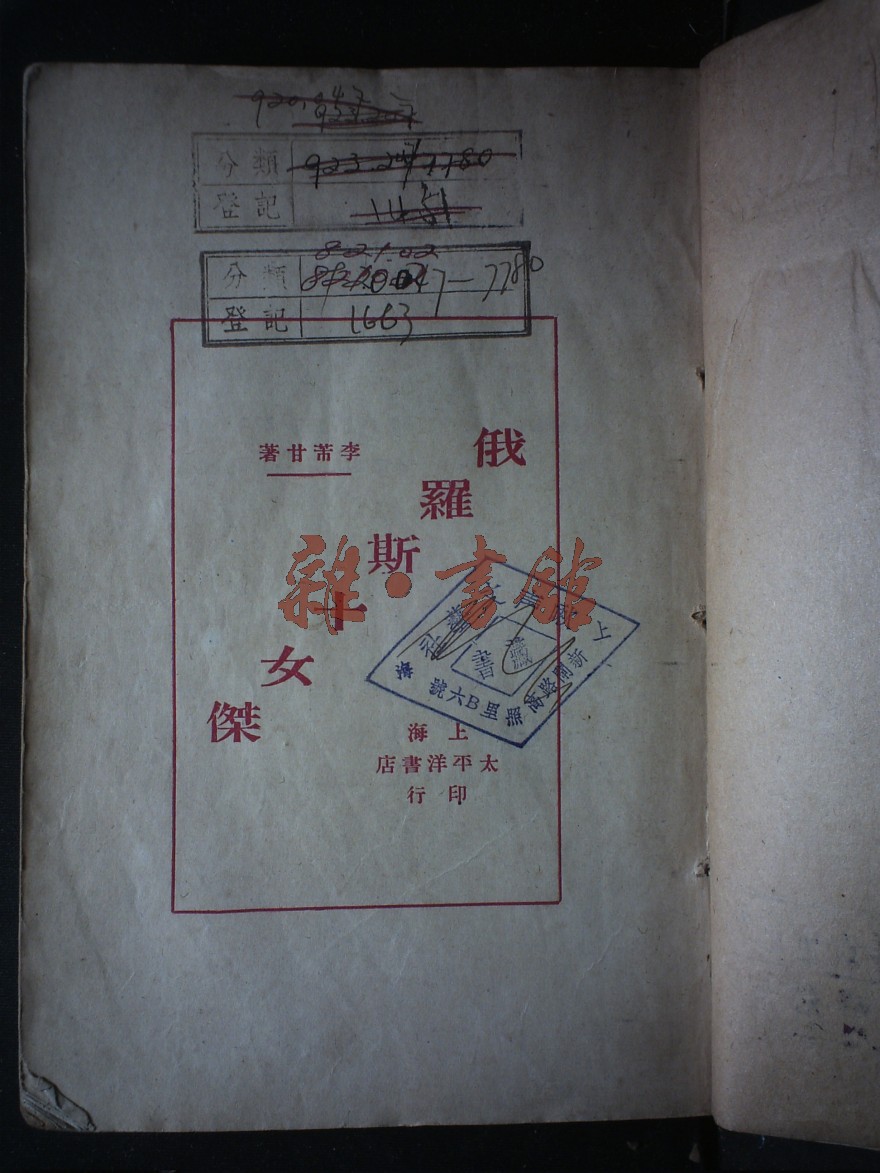 分類 923.24/7780
登記
821.02
分類 7780
登記 1663
俄羅斯十女傑
李芾甘著
雜·書館
上海
新閘路鴻照里B六號
藏書
上海
太平洋書店
印行